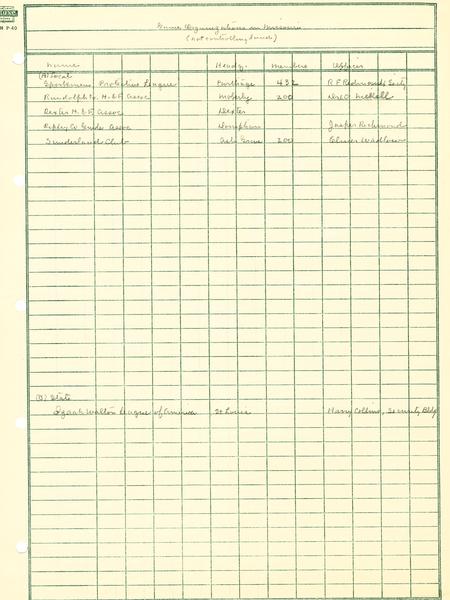 P 40
Game Organizations in Missouri
(not controlling lands)
Name Headq. Members Officer
(A) Local
Sportsmens Protective League Carthage 432 R F Redmond, Secty
Randolph Co. H & F Assoc Moberly 200
Dexter H. & F. Assoc Dexter
Ripley Co Guides Assoc Doniphan Jasper Richmond
Sunderland Club Ash Grove 200 Elmer Wadlow
(B) State
Izaak Walton League of America St Louis Harry Collins, Security Bldg